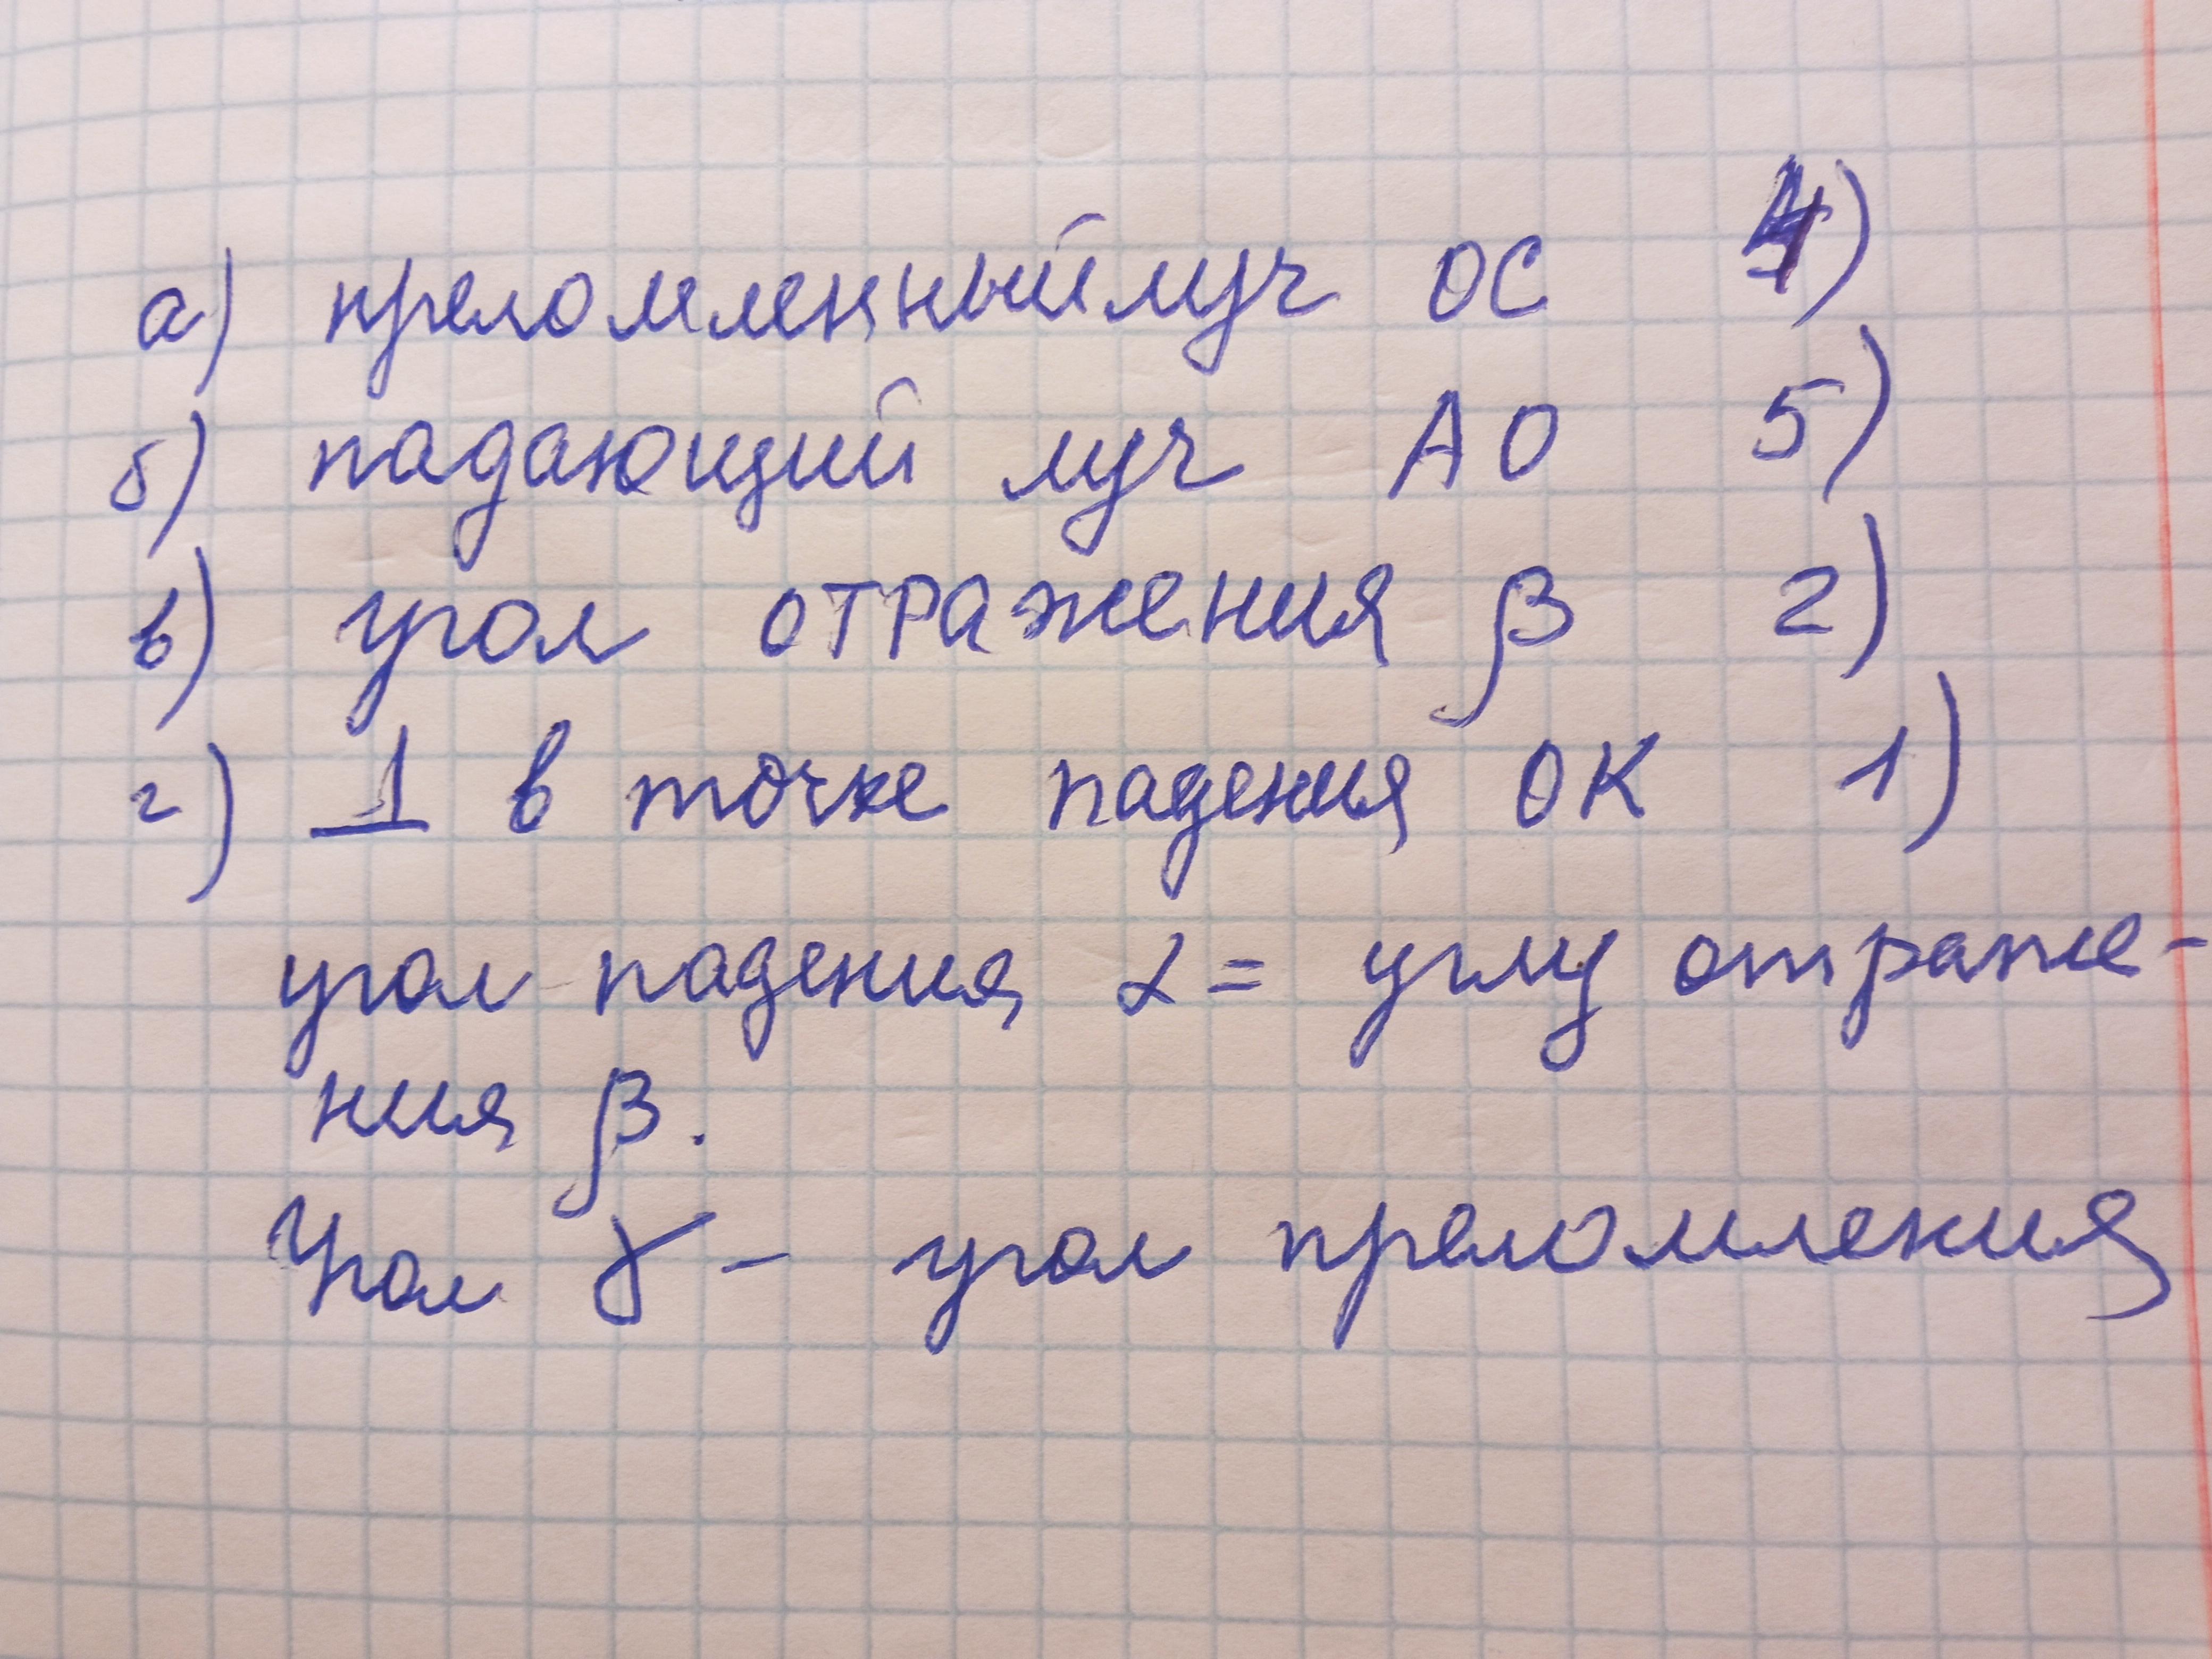 а) преломленный луч ОС 4)
б) падающий луч АО 5)
в) угол отражения β 2)
г) ⊥ в точке падения ОК 1)
угол падения α = углу отраже-
ния β.
Угол γ – угол преломления